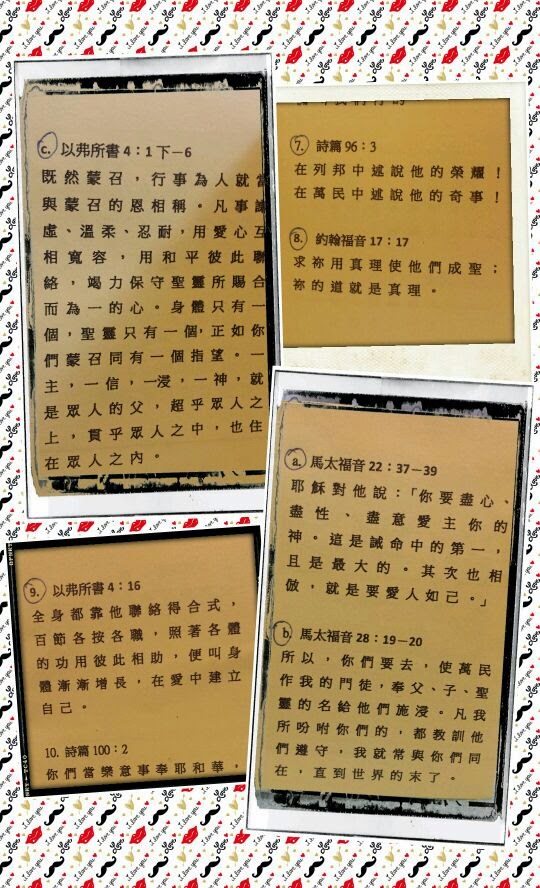 c. 以弗所書 4：1 下－6
既然蒙召，行事為人就當
與蒙召的恩相稱。凡事謙
虛、溫柔、忍耐，用愛心互
相寬容，用和平彼此聯
絡，竭力保守聖靈所賜合
而為一的心。身體只有一
個，聖靈只有一個，正如你
們蒙召同有一個指望。一
主，一信，一浸，一神，就
是眾人的父，超乎眾人之
上，貫乎眾人之中，也住
在眾人之內。
7. 詩篇 96：3
在列邦中述說他的榮耀！
在萬民中述說他的奇事！
8. 約翰福音 17：17
求祢用真理使他們成聖；
祢的道就是真理。
a. 馬太福音 22：37－39
耶穌對他說：「你要盡心、
盡性、盡意愛主你的
神。這是誡命中的第一，
且是最大的。其次也相
倣，就是要愛人如己。」
b 馬太福音 28：19－20
所以，你們要去，使萬民
作我的門徒，奉父、子、聖
靈的名給他們施浸。凡我
所吩咐你們的，都教訓他
們遵守，我就常與你們同
在，直到世界的末了。
9. 以弗所書 4：16
全身都靠他聯絡得合式，
百節各按各職，照著各體
的功用彼此相助，便叫身
體漸漸增長，在愛中建立
自己。
10. 詩篇 100：2
你們當樂意事奉耶和華，